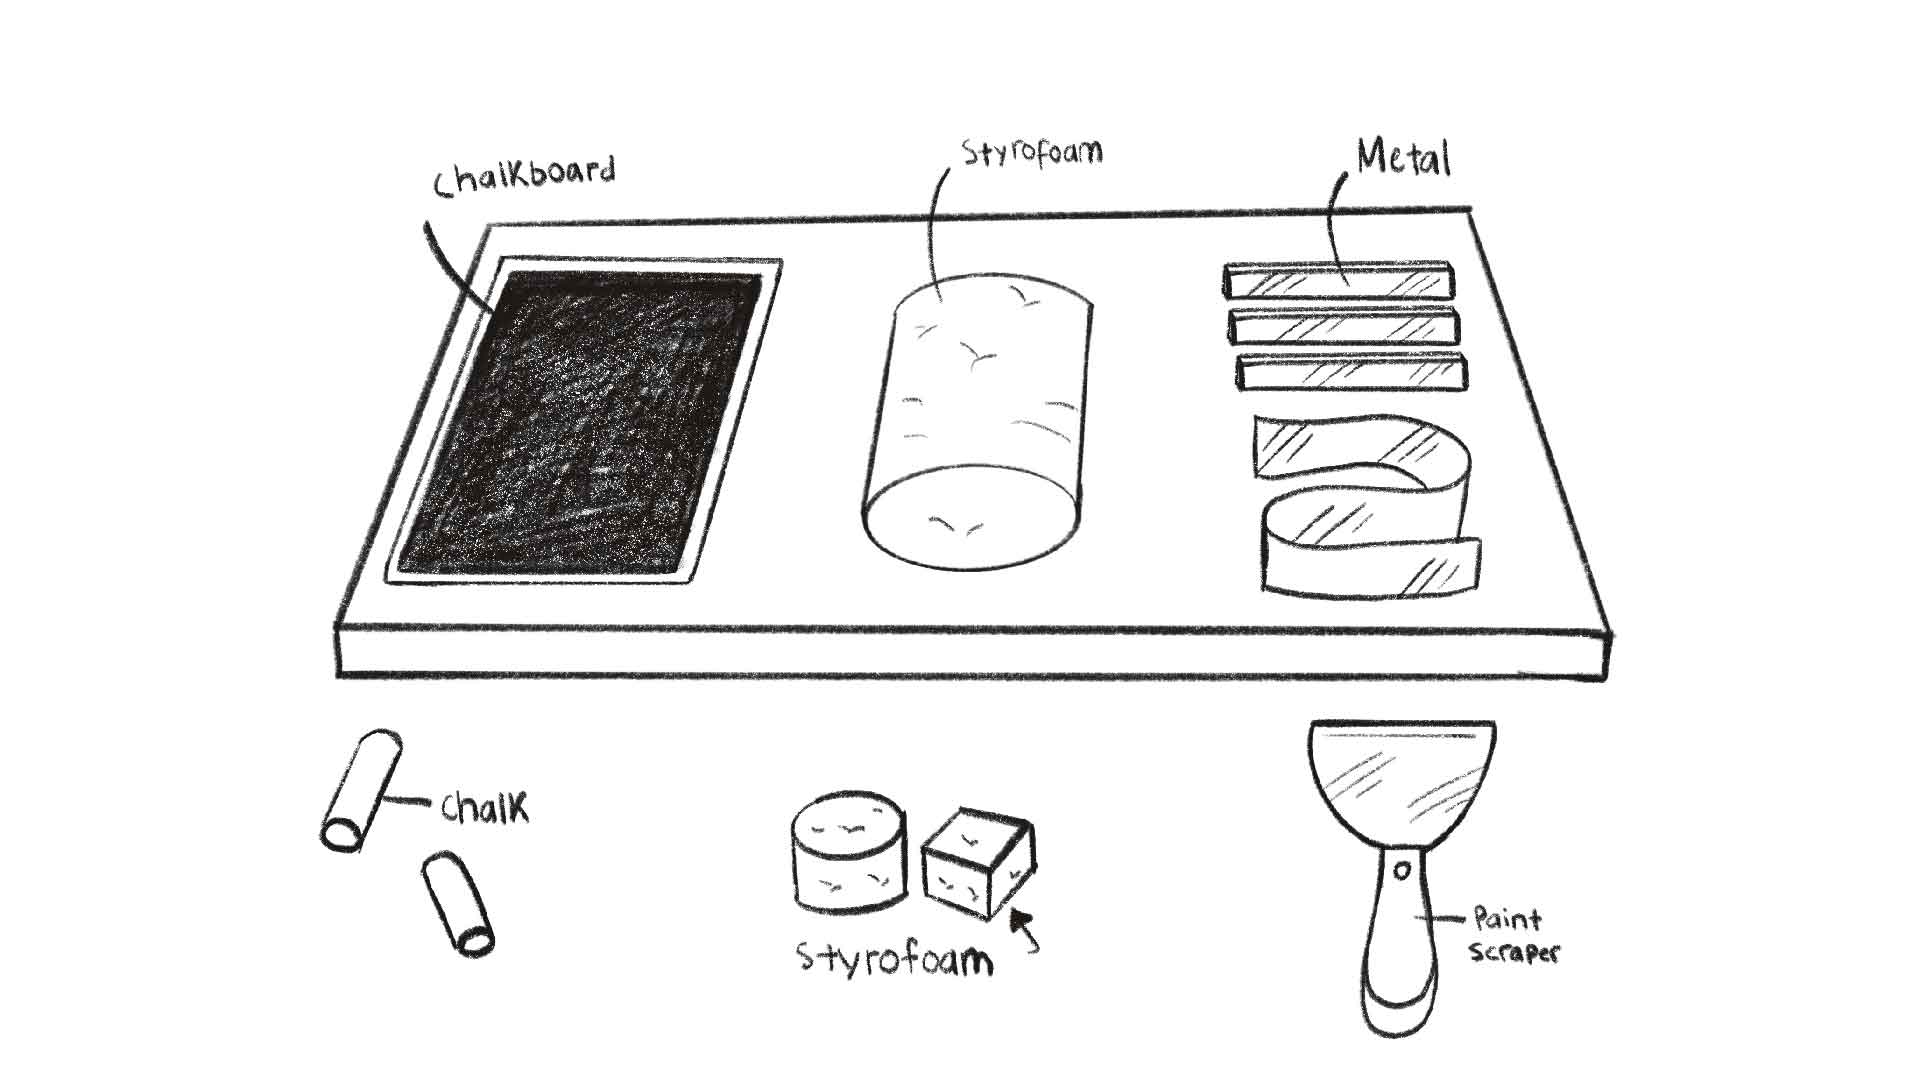 Chalkboard
Styrofoam
Metal
Chalk
Styrofoam
Paint
scraper